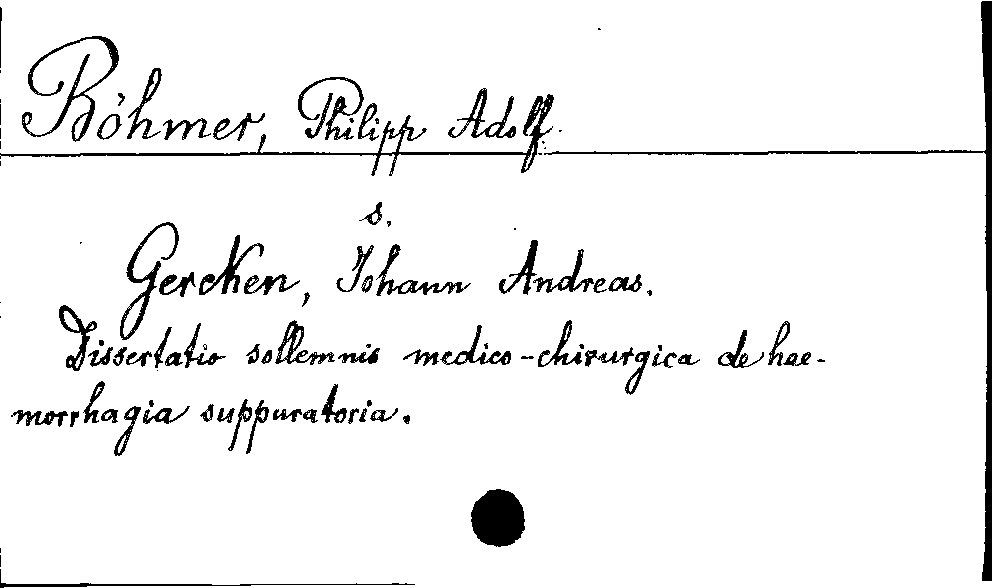 Böhmer, Philipp Adolf.
s.
Gercken, Johann Andreas.
Dissertatio sollemnis medico-chirurgica de hae-
morrhagia suppuratoria.